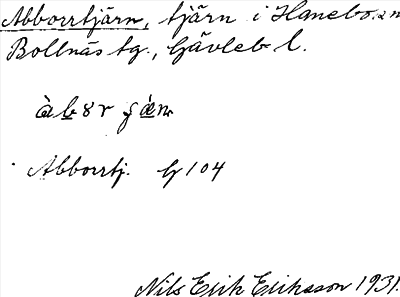 Abborrtjärn, tjärn i Hanebo sn
Bollnäs tg., Gävleb. l.
Abborrtj. G 104
Nils Erik Eriksson 1931.